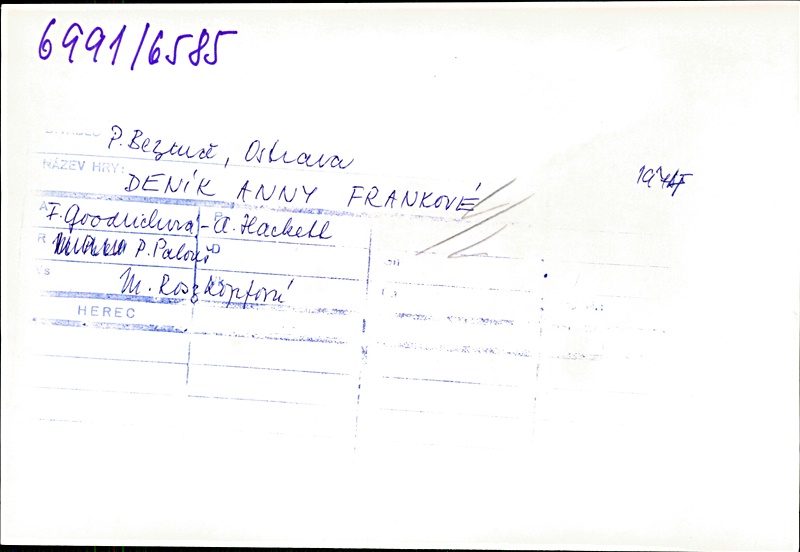 6991/6585
P. Bezruče, Ostrava
NÁZEV HRY:
DENÍK ANNY FRANKOVÉ
A F. Goodrichová - A. Hackett P
R P. Palouš D
Vs M. Roszkopfová
HEREC